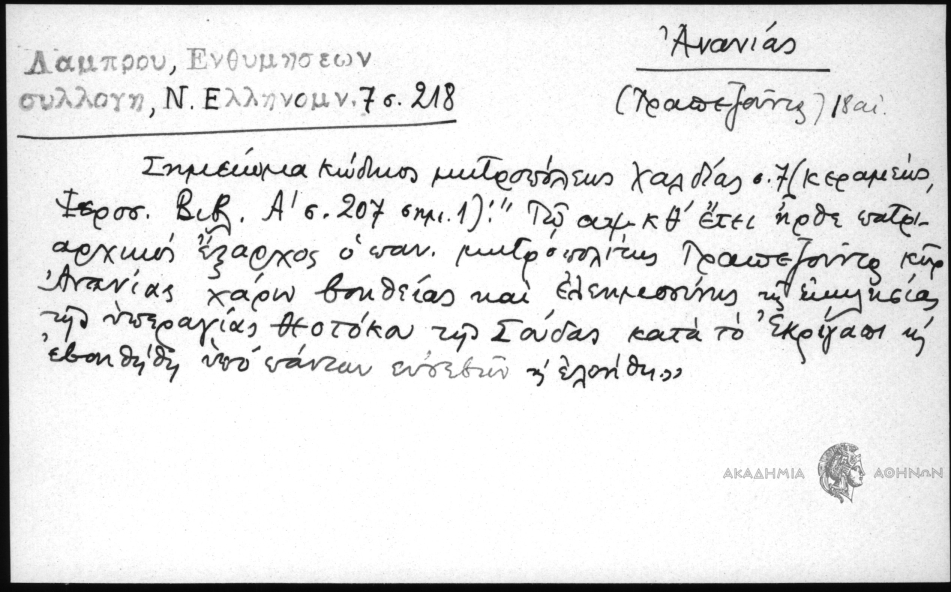 Λαμπρου, Ενθυμησεων
συλλογη, Ν. Ελληνομν. 7 σ. 218
Ἀνανίας
(Τραπεζοῦντος) 18 αἰ.
Σημείωμα κώδικος μητροπόλεως Χαλδίας σ. 7 (Κεραμεύς,
Ἱεροσ. Βιβ. Α' σ. 207 σημ. 1): "Τῷ αψκθ' ἔτει ἦρθε πατρι-
αρχικός ἔξαρχος ὁ παν. μητροπολίτης Τραπεζοῦντος κύρ
Ἀνανίας χάριν βοηθείας καί ἐλεημοσύνης τῇ ἐκκλησίᾳ
τῆς ὑπεραγίας Θεοτόκου τῆς Σούδας κατά τό
ἐβοηθήθη ὑπό πάντων εὐσεβῶν κ' ἐλεήθη»
ΑΚΑΔΗΜΙΑ ΑΘΗΝΩΝ